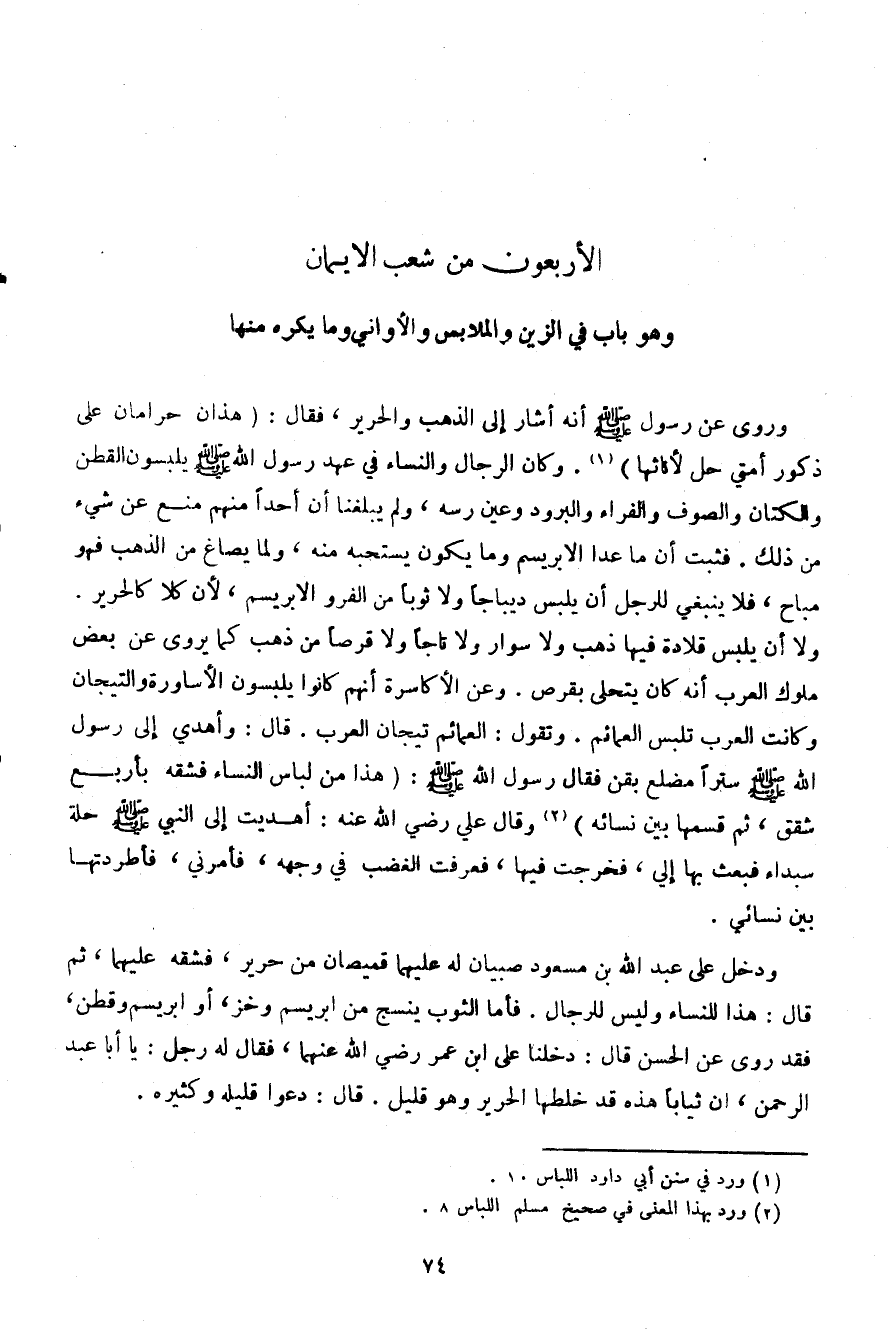 الأربعون من شعب الايمان
وهو باب في الزين والملابس والأواني وما يكره منها
وروى عن رسول ﷺ أنه أشار إلى الذهب والحرير ، فقال : ( هذان حرامان على
ذكور أمتي حل لأناثها ) (١) . وكان الرجال والنساء في عهد رسول الله ﷺ يلبسون القطن
والكتان والصوف والفراء والبرود وعين رسه ، ولم يبلغنا أن أحداً منهم منع عن شيء
من ذلك . فثبت أن ما عدا الابريسم وما يكون يستحبه منه ، ولما يصاغ من الذهب فهو
مباح ، فلا ينبغي للرجل أن يلبس ديباجاً ولا ثوباً من الفرو الابريسم ، لأن كلا كالحرير .
ولا أن يلبس قلادة فيها ذهب ولا سوار ولا تاجاً ولا قرصاً من ذهب كما يروى عن بعض
ملوك العرب أنه كان يتحلى بقرص . وعن الأكاسرة أنهم كانوا يلبسون الأساورة والتيجان
وكانت العرب تلبس العمائم . وتقول : العمائم تيجان العرب . قال : وأهدي إلى رسول
الله ﷺ ستراً مضلع بقن فقال رسول الله ﷺ : ( هذا من لباس النساء فشقه بأربع
شقق ، ثم قسمها بين نسائه ) (٢) وقال علي رضي الله عنه : أهديت إلى النبي ﷺ حلة
سبداء فبعث بها إلي ، فخرجت فيها ، فعرفت الغضب في وجهه ، فأمرني ، فأطردتها
بين نسائي .
ودخل على عبد الله بن مسعود صبيان له عليهما قميصان من حرير ، فشقه عليهما ، ثم
قال : هذا للنساء وليس للرجال . فأما الثوب ينسج من ابريسم وخز ، أو ابريسم وقطن ،
فقد روى عن الحسن قال : دخلنا على ابن عمر رضي الله عنهما ، فقال له رجل : يا أبا عبد
الرحمن ، ان ثياباً هذه قد خلطها الحرير وهو قليل . قال : دعوا قليله وكثيره .
(١) ورد في سنن أبي داود اللباس ١٠ .
(٢) ورد بهذا المعنى في صحيخ مسلم اللباس ٨ .
٧٤